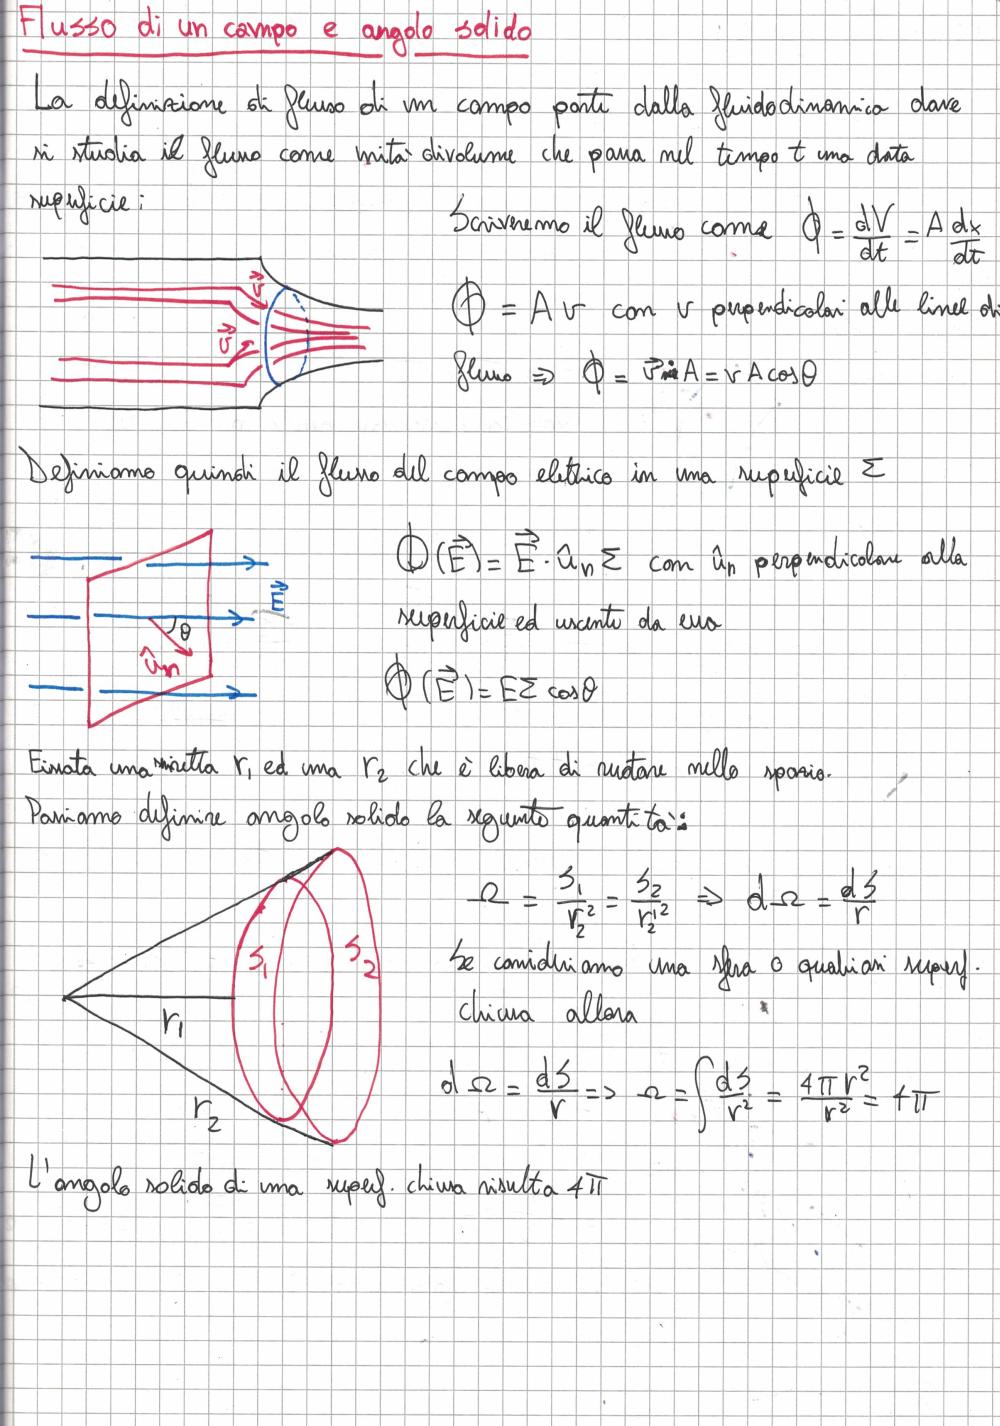 Flusso di un campo e angolo solido
La definizione di flusso di un campo parte dalla fluidodinamica dove
si studia il flusso come unità di volume che passa nel tempo t una data
superficie:
Scriveremo il flusso come Φ = dV/dt = A dx/dt
Φ = A v con v perpendicolari alle linee di
flusso => Φ = v⃗ A = v A cosθ
v⃗
v⃗
Definiamo quindi il flusso del campo elettrico in una superficie Σ
Φ(E⃗) = E⃗ · û_n Σ con û_n perpendicolare alla
superficie ed uscente da essa
Φ(E⃗) = EΣ cosθ
E⃗
θ
û_n
Fissata una r₁ ed una r₂ che è libera di ruotare nello spazio.
Possiamo definire angolo solido la seguente quantità:
Ω = S₁/r₂² = S₂/r₂² => dΩ = dS/r
Se consideriamo una sfera o qualsiasi superf.
chiusa allora
dΩ = dS/r => Ω = ∫ dS/r² = 4πr²/r² = 4π
S₁
S₂
r₁
r₂
L'angolo solido di una superf. chiusa risulta 4π